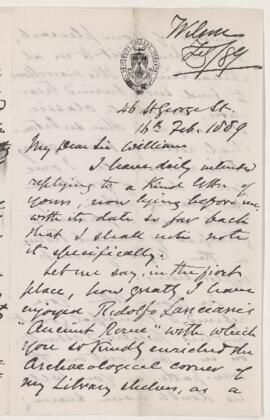 Wilson
Feb/89
46 St George St.
14th Feb. 1889
My Dear Sir William
I have daily intended
replying to a kind letter of
yours, now lying before me,
with its date so far back
that I shall not note
it specifically.
Let me say, in the first
place, how greatly I have
enjoyed Rodolfo Lanciani's
"Ancient Rome" with which
you so kindly enriched the
Archaeological corner of
my Library shelves, as a